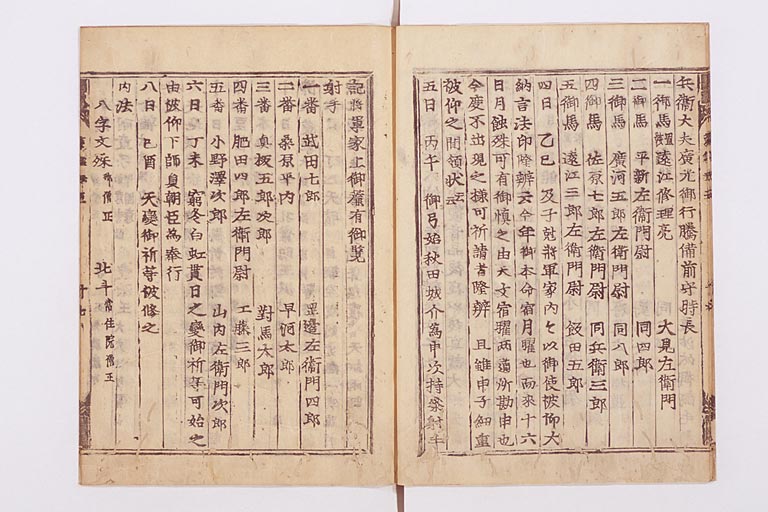 兵衛大夫廣光御行騰備前守時長
一御馬 遠江修理亮 大見左衛門
二御馬 平新左衛門尉 同四郎
三御馬 廣河五郎左衛門尉 同八郎
四御馬 佐原七郎左衛門尉 同兵衛三郎
五御馬 遠江三郎左衛門尉 飯田五郎
四日 乙巳 及子尅將軍家内々以御使被仰大
納言法印隆辨云今年御本命宿月曜也而来十六
日月蝕殊可有御慎之由天文宿曜両道所勘申也
今度不出現之様可祈請者隆辨 且雖申子細重
被仰之間領状云云
五日 丙午 御弓始秋田城介為申次持参射手
記將軍家上御簾有御覧
射手
一番 武田七郎 早河太郎
二番 桑原平内
三番 眞板五郎次郎 對馬太郎
四番 肥田四郎左衛門尉 工藤三郎
五番 小野澤次郎 山内左衛門次郎
六日 丁未 窮冬白虹貫日之變御祈等可始之
由被仰下師員朝臣為奉行
八日 己酉 天變御祈等被修之
内法
八字文殊 御僧正 北斗 常住院僧正